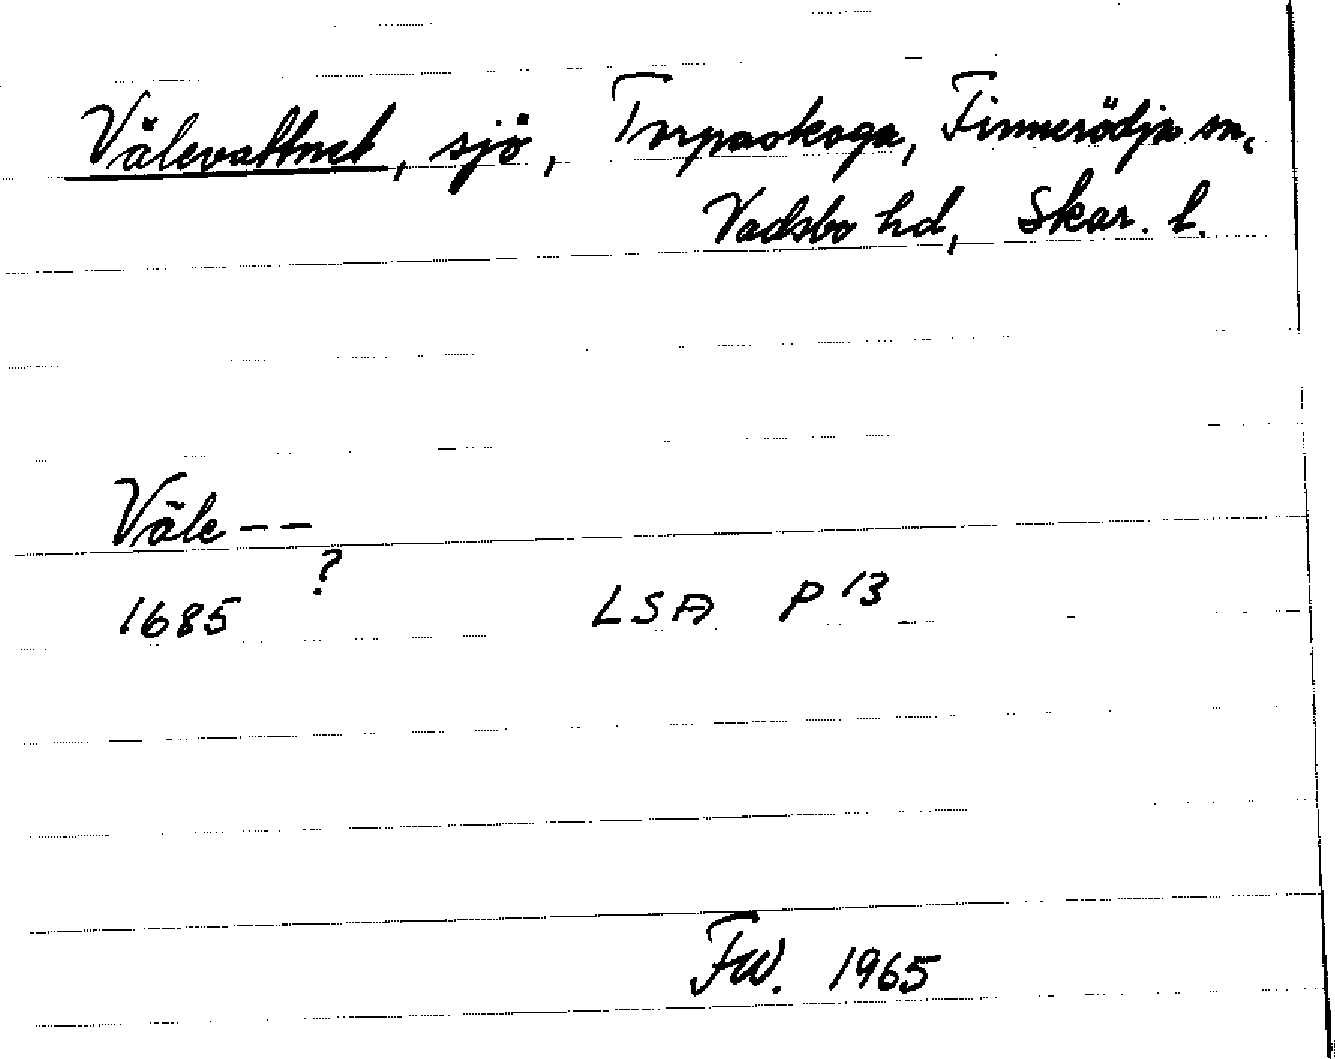 Välevattnet, sjö, Torpaskoga, Finnerödja sn.
Vadsbo hd, Skar. l.
Väle--
?
1685 LSA P 13
Fw. 1965